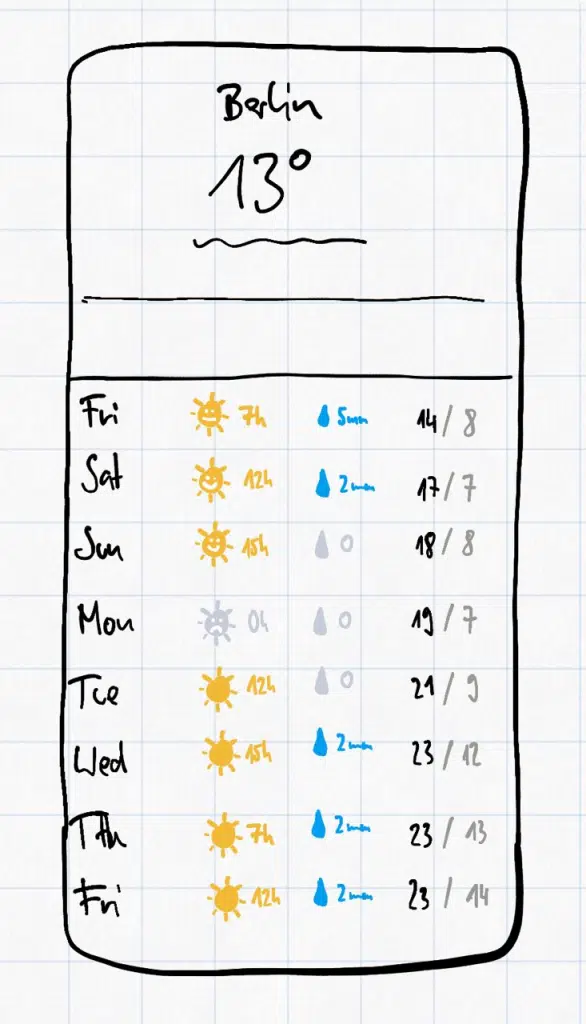 Berlin
13°
Fri 7h 5mm 14 / 8
Sat 12h 2mm 17 / 7
Sun 15h 0 18 / 8
Mon 0h 0 19 / 7
Tue 12h 0 21 / 9
Wed 15h 2mm 23 / 12
Th 7h 2mm 23 / 13
Fri 12h 2mm 23 / 14